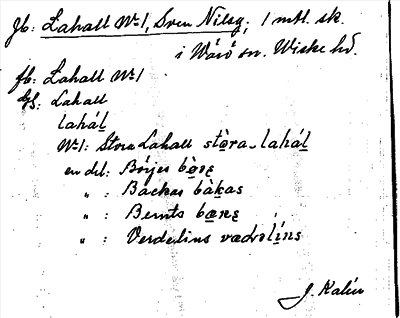 Jb: Lahall No 1, Sven Nilsg; 1 mtl. sk.
i Wärö sn. Wiske hd.
fb: Lahall No 1
ds: Lahall
lahál
No 1: Stora Lahall stòra-lahál
en del: Börjes
" : Backas bàkas
" : Bernts
" : Verdelins vædrolíns
J. Kalén